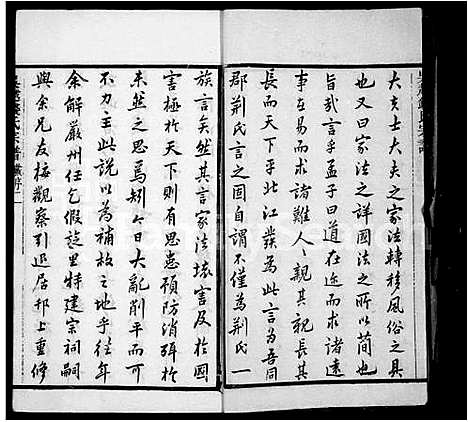 大夫士大夫之家法轉移風俗之具
也又曰家法之詳國法之所以簡也
旨哉言乎孟子曰道在途而求諸遠
事在易而求諸難人人親其親長其
長而天下平北江發為此言為吾同
郡荆氏言固自謂不僅為荆氏一
族言矣然言家法壞害及於國
害極於天下則有思患預防消弭於
未然之思焉矧今日大亂削平而可
不力主此說以為補救之地乎往年
余解嚴州任乞假旋里特建宗祠嗣
與余兄友梅觀察引退居邗上重修